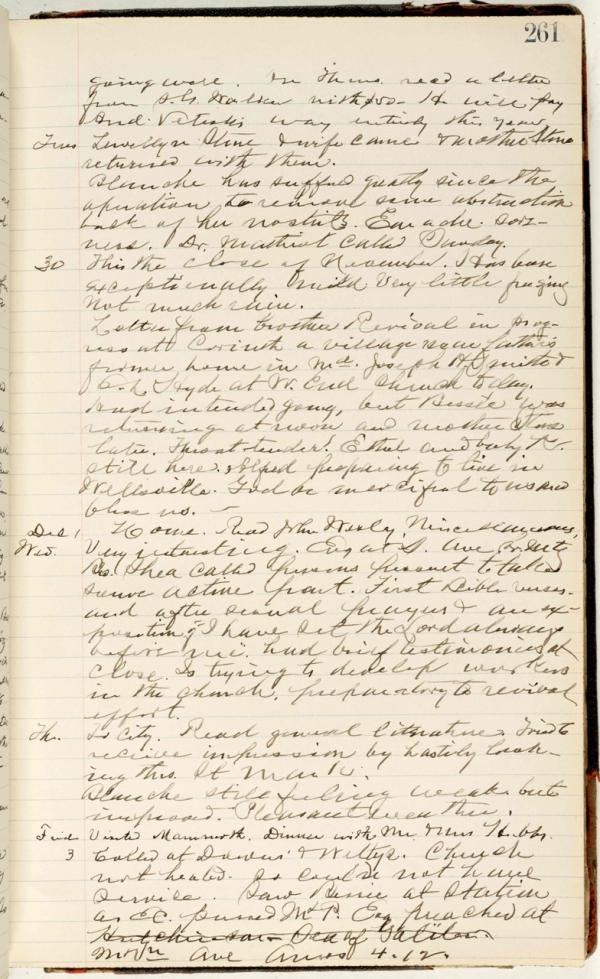 261
going were. In Thms. read a letter
from S. G. with He will pay
And. way this year,
Tues Lewellyn Stine & wife came & mother Stine
returned with them.
Blanche has suffered greatly since the
operation to remove some obstruction
back of her nostrils. Earache. sore-
ness. Dr. called Sunday.
30 This the close of November. Has been
exceptionally mild Very little freezing
Not much rain.
Letter from brother Revival in prog-
ress at Corinth a village near father's
former home in Md. Joseph H. Smith &
C. L. Hyde at W. End Church today.
Had intended going, but Bessie was
returning at noon and mother Stine
later. Throat tender. Ethel and baby K.
still here. Alfred preparing to live in
Wellsville. God be merciful to us and
bless us.
Dec 1, Home. Read John Wesley, Miscellaneous,
Wed. Very interesting. Eve at S. Ave Pr. Mtg
Bro. Shea called persons present to take
some active part. First Bible verses.
and after several prayers & an ex-
position of "I have set the Lord always
before me". had brief testimonies at
close. Is trying to develop workers
in the church, preparatory to revival
effort.
Th. To City. Read general literature. Tried to
receive impression by hastily look-
ing thro. St Mark.
Blanche still feeling weak but
improved. Pleasant weather.
Frid. Visited Mammoth. Dinner with Mr. & Mrs. Hubbs.
3 Called at & Church
not heated. So could not have
service. Saw Bessie at Station
as EC. passed Mt P. Eve preached at
Hutchinson Sea of Galilee.
Mt Vn Ave Amos 4.12.